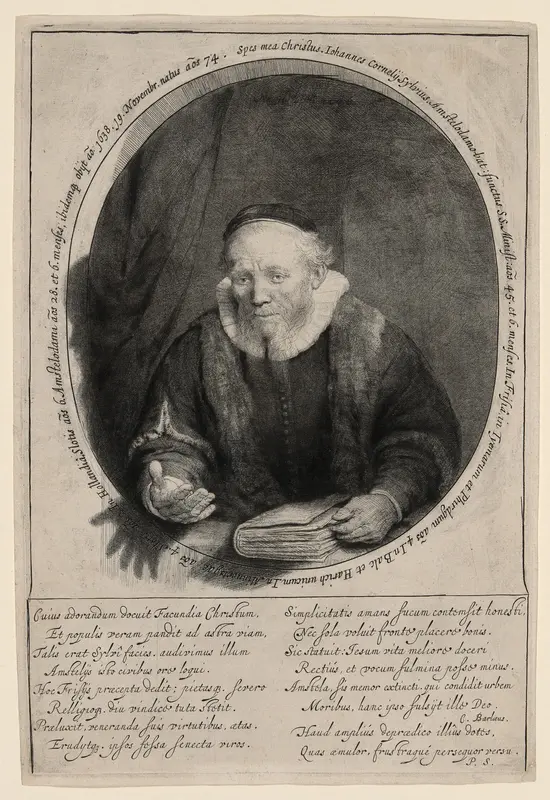 Spes mea Christus. Iohannes Cornelij Sylvius, Amstelodamobat: functus S.S. Minist: aōs 45. et 6. menses. In Frisiâ in Tyenarum et Phirdgum aōs 4. In Balc et Harich unicum. In Minnertsgâ aōs 4. In Hollandia Slotis aōs 6. Amstelodami aōs 28. et 6. menses, ibidemq, obijt aō. 1638. 19. Novembr. natus aōs 74.
Cuius adorandum docuit Facundia Christum,
Et populis veram pandit ad astra viam,
Talis erat Sylvî facies. audivimus illum
Amstelijs isto civibus ore loqui.
Hoc Frisijs præcepta dedit; pietasq, severo
Relligioq, diu vindice tuta stetit.
Præluxit, veneranda suis virtutibus, ætas.
Erudytq, ipsos fessa senecta viros.
Simplicitatis amans fucum contemsit honesti,
Nec sola voluit fronte placere bonis.
Sic statuit: Jesum vita meliore doceri
Rectius, et vocum fulmina posse minus.
Amstela, sis memor extincti, qui condidit urbem
Moribus, hanc ipso fulsijt ille Deo.
C. Barlæus.
Haud amplius deprædico illius dotes,
Quas æmulor, frustraque persequor versu.
P. S.